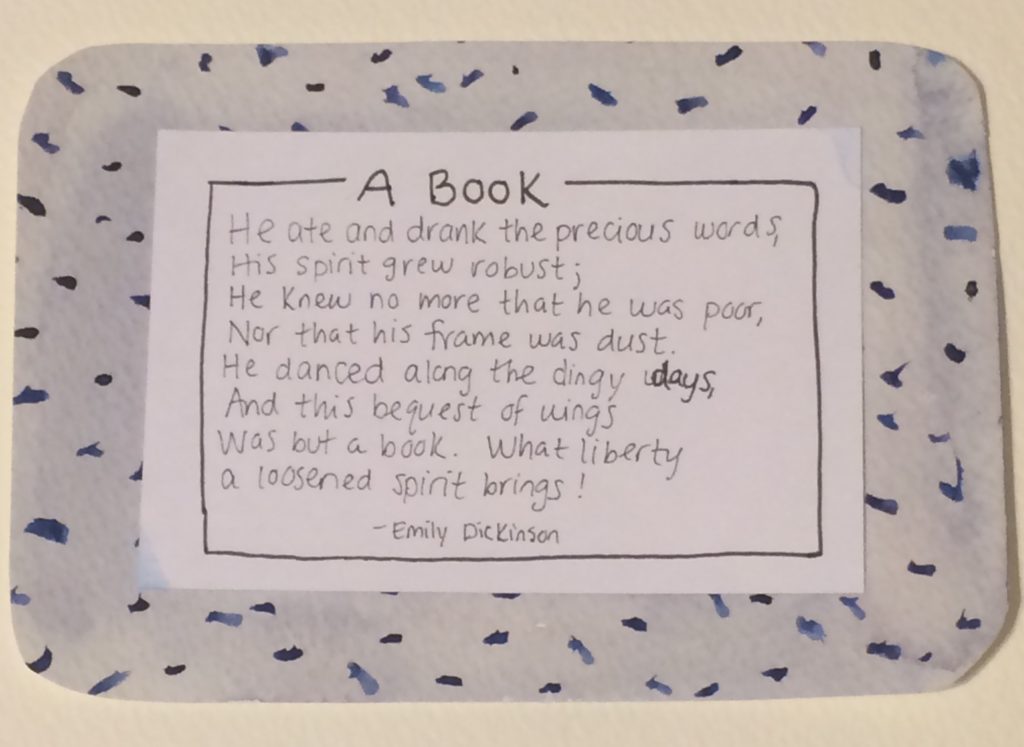 A BOOK
He ate and drank the precious words,
His spirit grew robust;
He knew no more that he was poor,
Nor that his frame was dust.
He danced along the dingy days,
And this bequest of wings
Was but a book. What liberty
a loosened spirit brings!
-Emily Dickinson